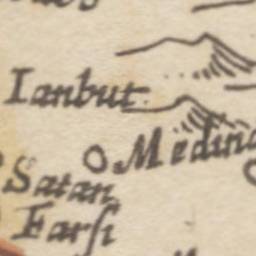 Ianbut
Medina
Satan
Farſi